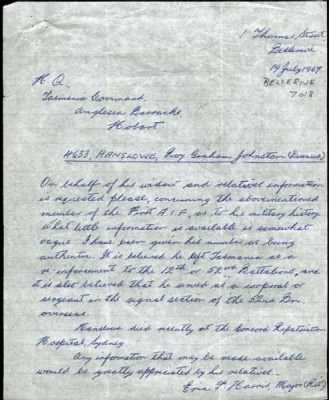 1 Thomas Street
Bellerive
19 July 1967
BELLERIVE
7018
H.Q.,
Tasmania Command,
Anglesea Barracks,
Hobart
4633, HANSLOWE, Roy Graham Johnston (Deceased)
On behalf of his widow and relatives information
is requested please, concerning the abovementioned
member of the First A.I.F., as to his military history
what little information is available is somewhat
vague. I have been given his number as being
authentic. It is believed he left Tasmania as a
reinforcement to the 12th or 52nd Battalions, and
it is also believed that he served as a corporal or
sergeant in the signal section of the 52nd Bn.
overseas.
Hanslowe died recently at the Concord Repatriation
Hospital, Sydney
Any information that may be made available
would be greatly appreciated by his relatives.
Eric F. Major (Rtd)